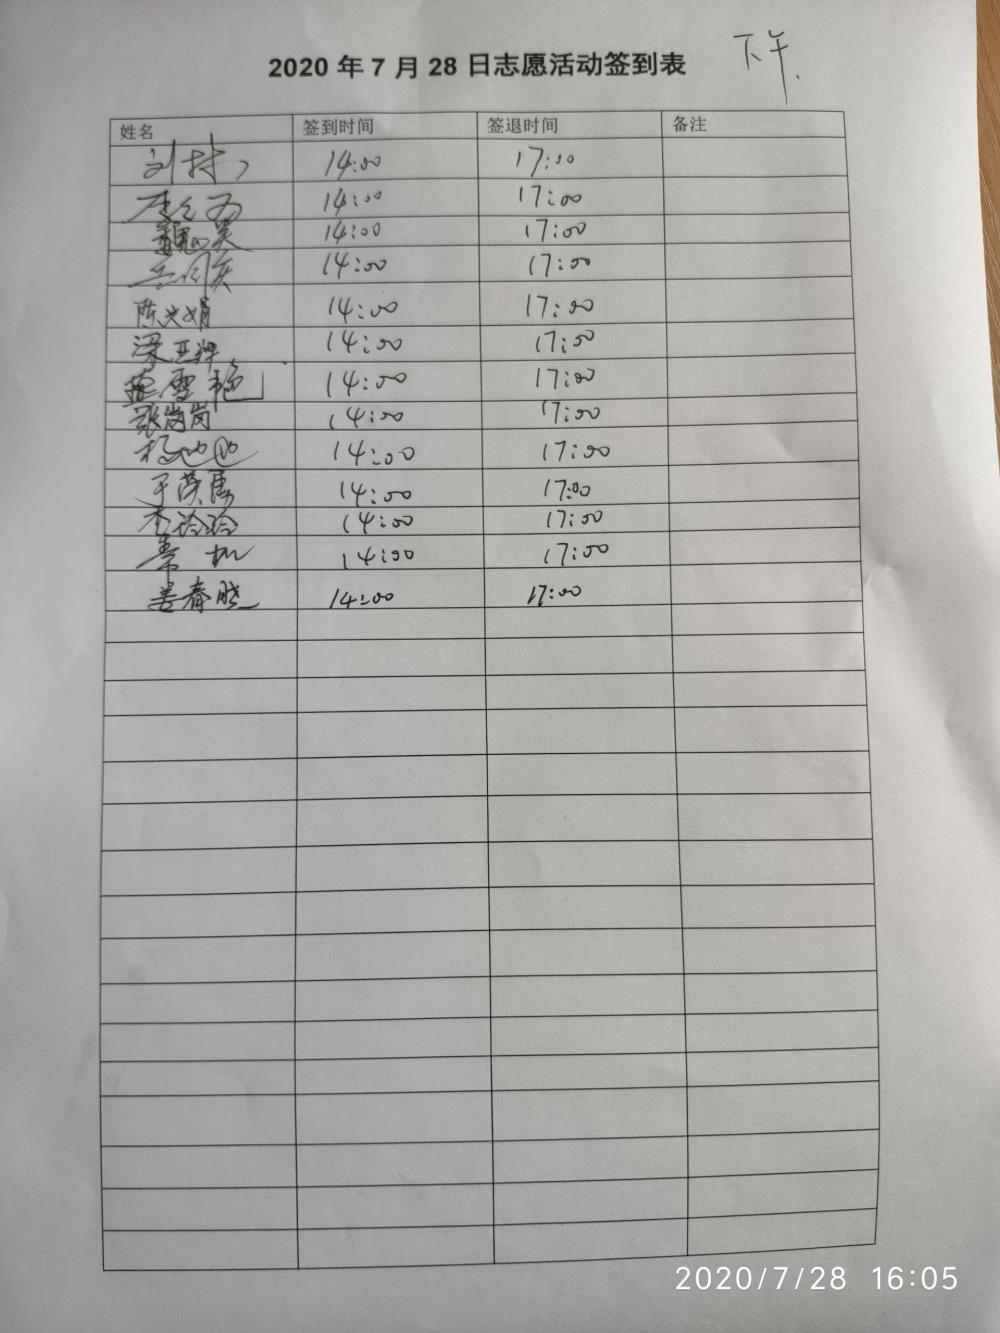 2020 年 7 月 28 日志愿活动签到表 下午
姓名 签到时间 签退时间 备注
刘 14:00 17:00
14:00 17:00
魏 14:00 17:00
14:00 17:00
陈 娟 14:00 17:00
梁亚 14:00 17:00
雪艳 14:00 17:00
张岗岗 14:00 17:00
杨 14:00 17:00
于 14:00 17:00
李玲玲 14:00 17:00
秦 14:00 17:00
姜春晓 14:00 17:00
2020/7/28 16:05